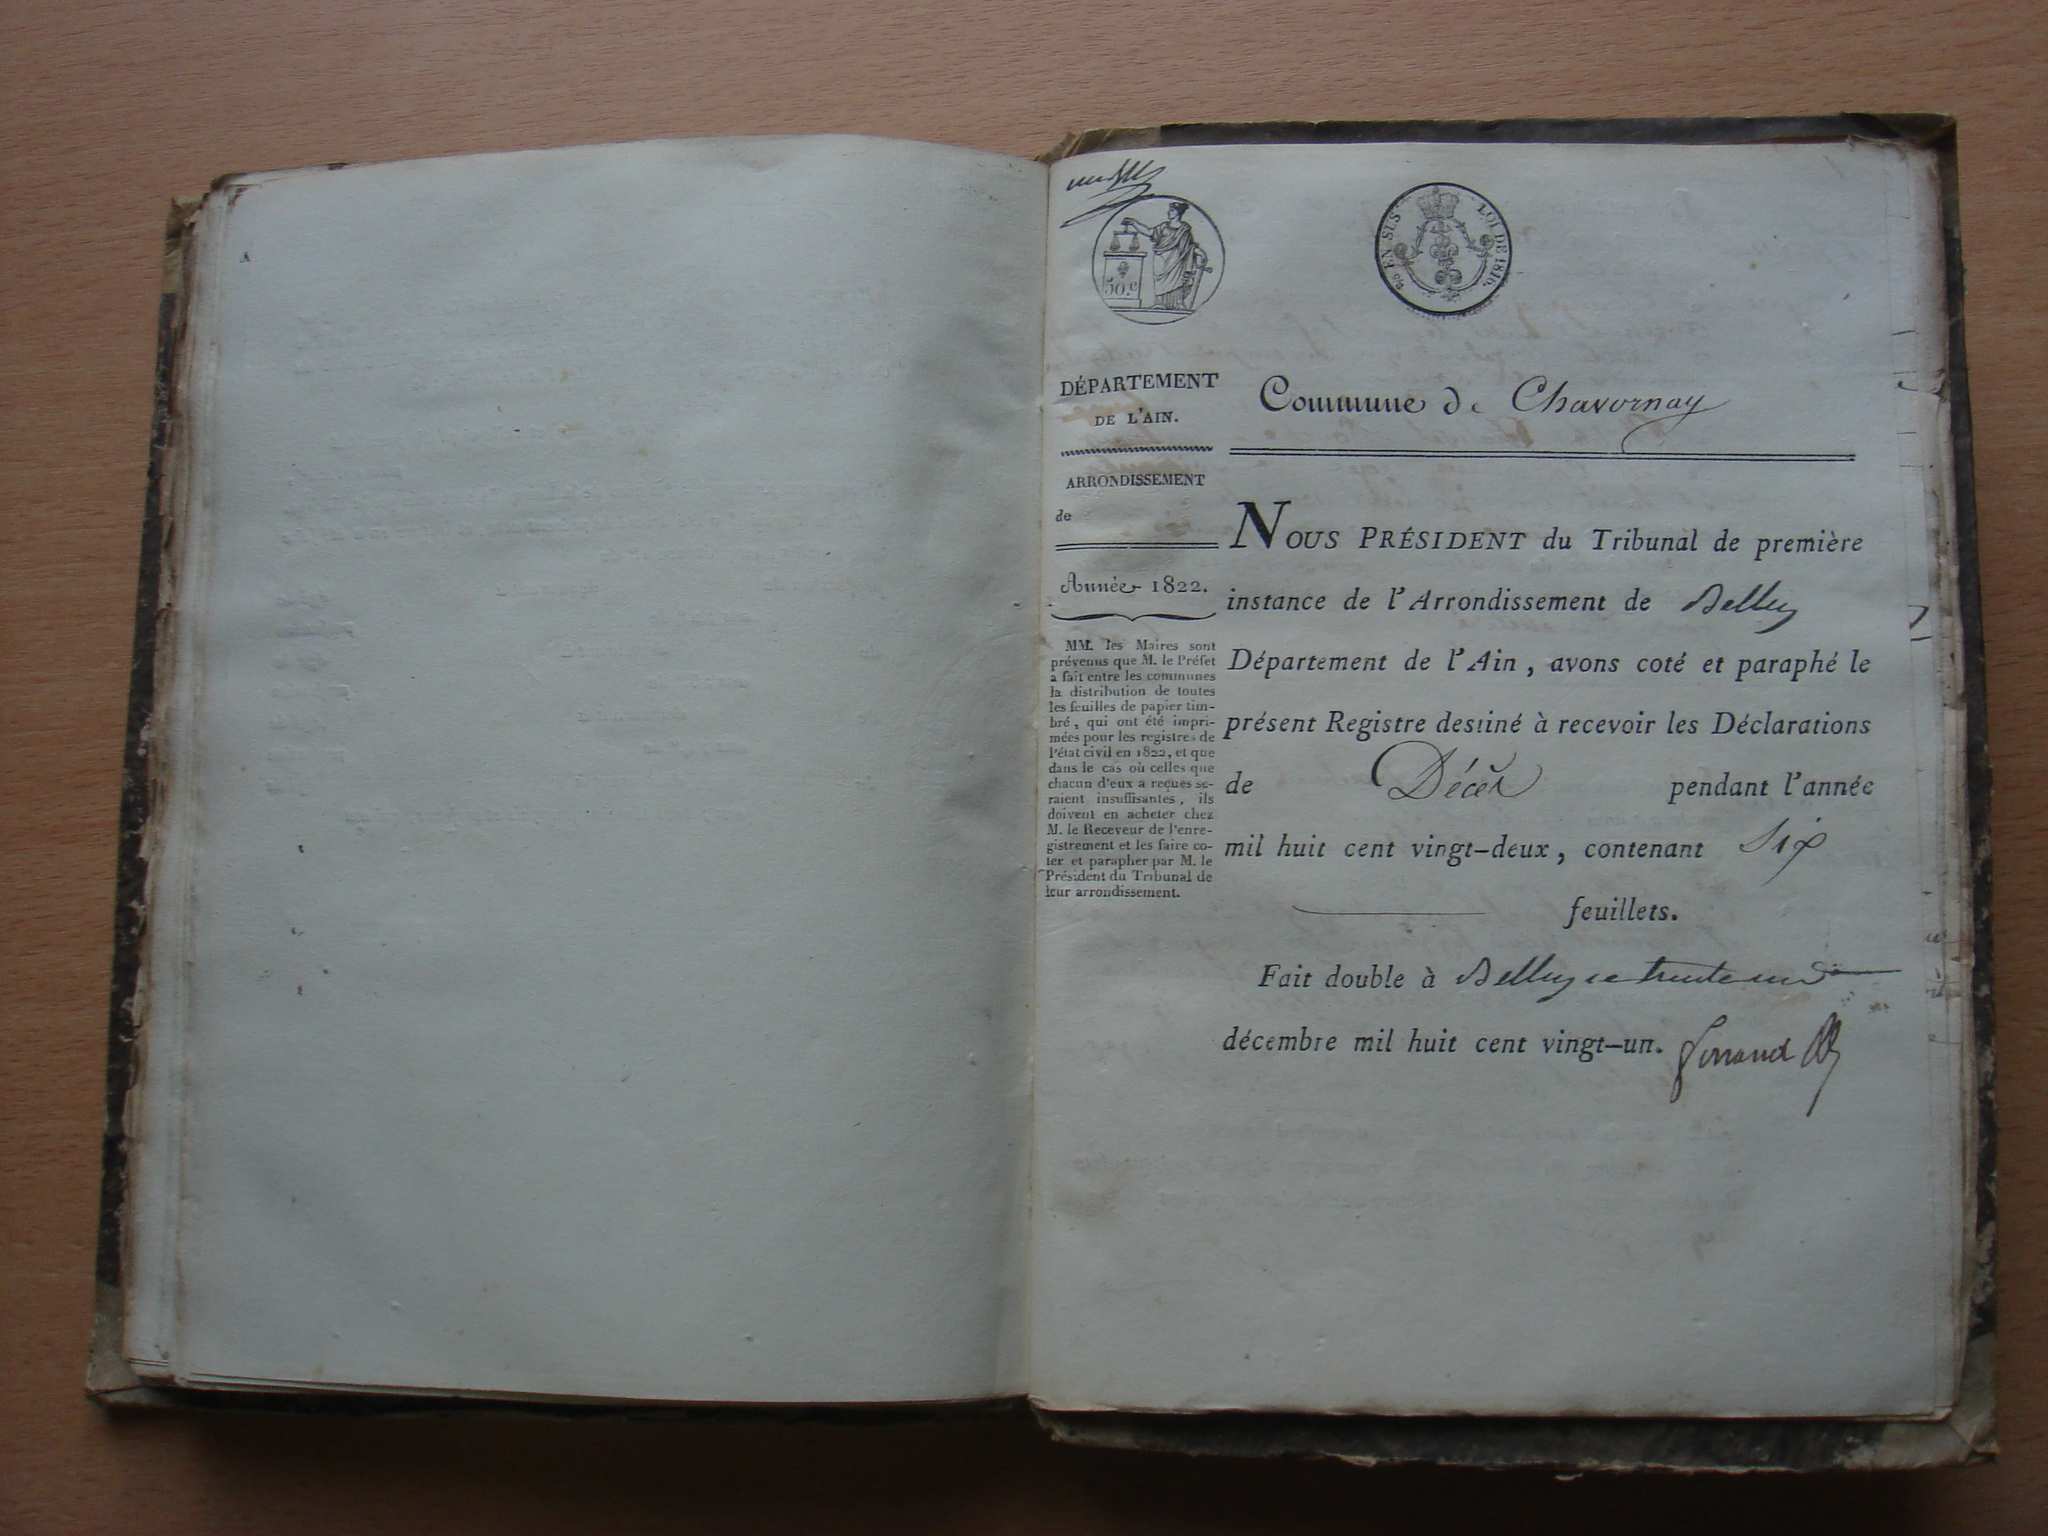 50.c
EN SUS
LOI DE 1816.
DÉPARTEMENT
DE L'AIN.
ARRONDISSEMENT
de
Année 1822.
MM. les Maires sont
prévenus que M. le Préfet
a fait entre les communes
la distribution de toutes
les feuilles de papier tim-
bré, qui ont été impri-
mées pour les registres de
l'état civil en 1822, et que
dans le cas où celles que
chacun d'eux a reçues se-
raient insuffisantes, ils
doivent en acheter chez
M. le Receveur de l'enre-
gistrement et les faire co-
ter et parapher par M. le
Président du Tribunal de
leur arrondissement.
Commune de Chavornay
NOUS PRÉSIDENT du Tribunal de première
instance de l'Arrondissement de Belley
Département de l'Ain, avons coté et paraphé le
présent Registre destiné à recevoir les Déclarations
de Décès pendant l'année
mil huit cent vingt-deux, contenant Six
feuillets.
Fait double à Belley ce trente un
décembre mil huit cent vingt-un.